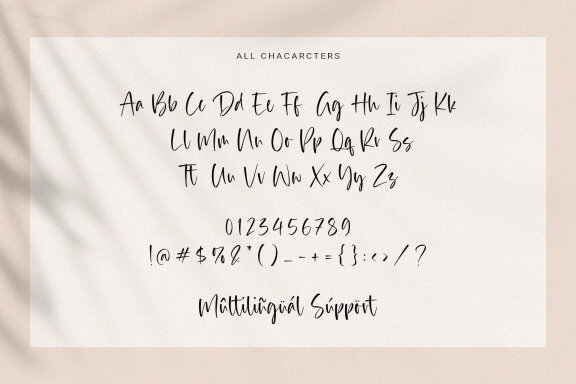 ALL CHACARCTERS
Aa Bb Cc Dd Ee Ff Gg Hh Ii Jj Kk
Ll Mm Nn Oo Pp Qq Rr Ss
Tt Uu Vv Ww Xx Yy Zz
0123456789
!@#$%&*()_-+={}:<>/?
Mûltiliñgüál Súppört